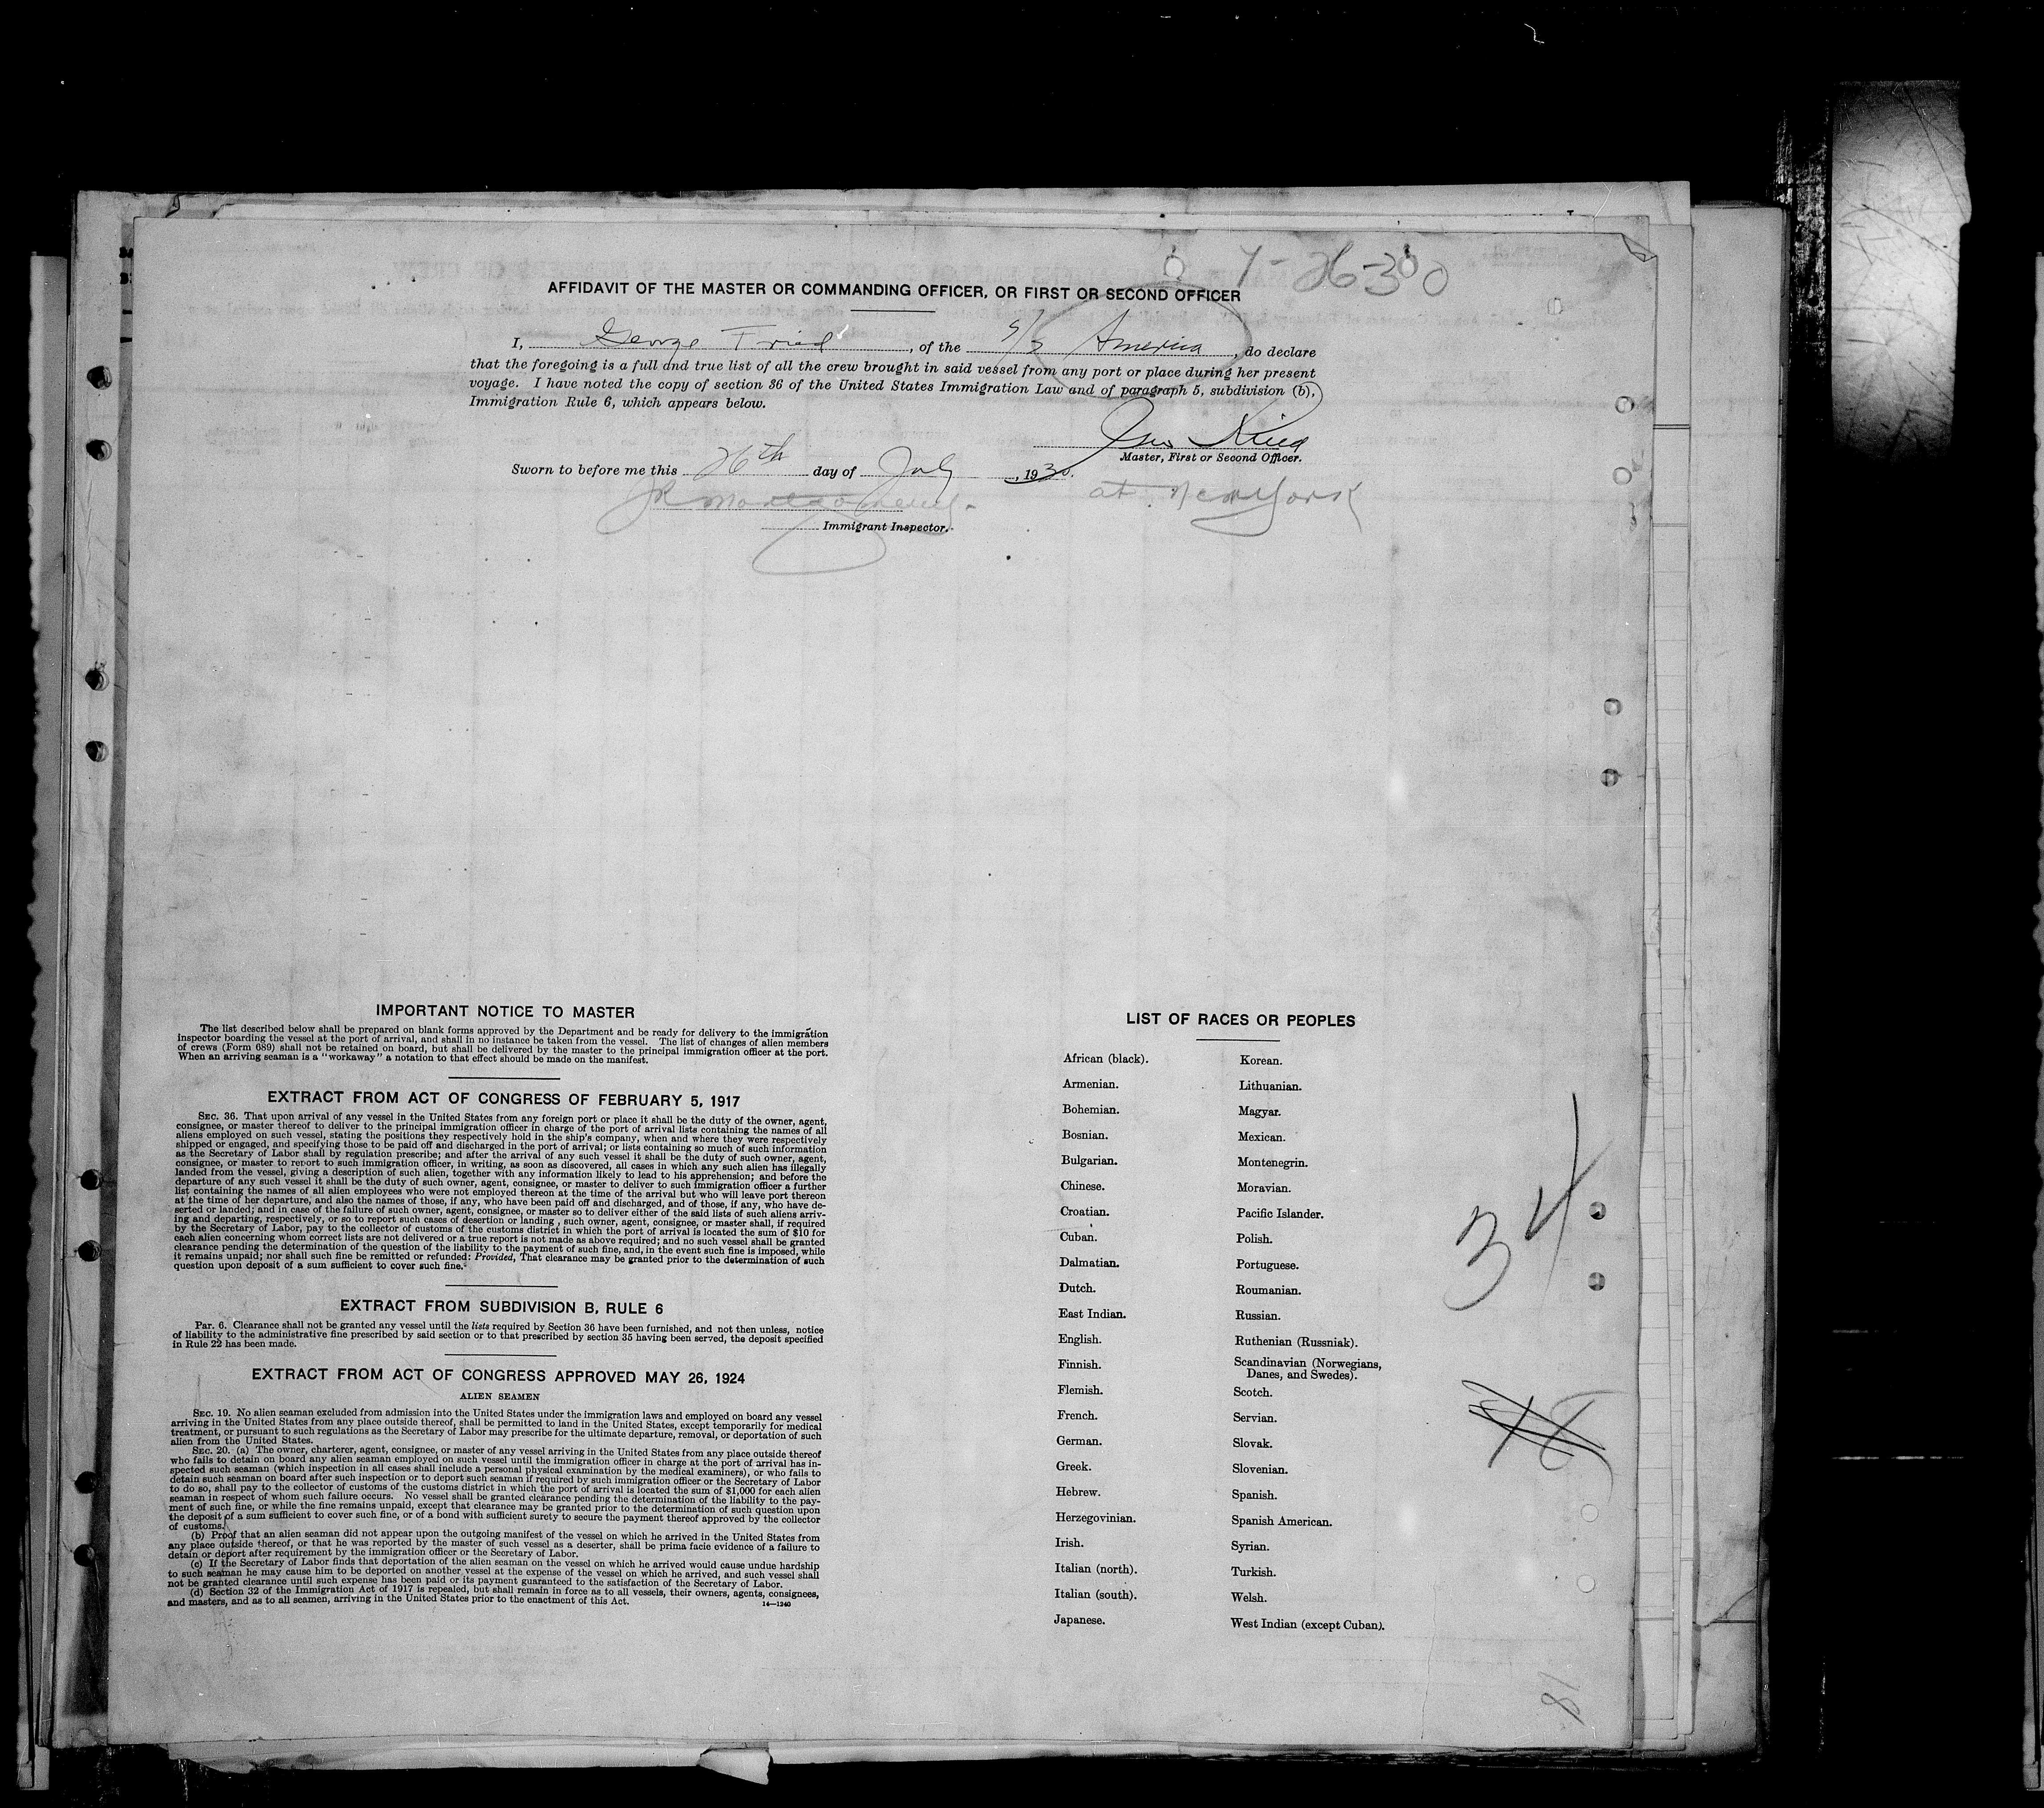 7-26-30
AFFIDAVIT OF THE MASTER OR COMMANDING OFFICER, OR FIRST OR SECOND OFFICER
I, George Fried, of the S/S America, do declare
that the foregoing is a full and true list of all the crew brought in said vessel from any port or place during her present
voyage. I have noted the copy of section 36 of the United States Immigration Law and of paragraph 5, subdivision (b),
Immigration Rule 6, which appears below.
Geo Fried
Master, First or Second Officer.
Sworn to before me this 26th day of July, 1930.
at New York
Immigrant Inspector.
IMPORTANT NOTICE TO MASTER
The list described below shall be prepared on blank forms approved by the Department and be ready for delivery to the immigration
inspector boarding the vessel at the port of arrival, and shall in no instance be taken from the vessel. The list of changes of alien members
of crews (Form 689) shall not be retained on board, but shall be delivered by the master to the principal immigration officer at the port.
When an arriving seaman is a "workaway" a notation to that effect should be made on the manifest.
EXTRACT FROM ACT OF CONGRESS OF FEBRUARY 5, 1917
SEC. 36. That upon arrival of any vessel in the United States from any foreign port or place it shall be the duty of the owner, agent,
consignee, or master thereof to deliver to the principal immigration officer in charge of the port of arrival lists containing the names of all
aliens employed on such vessel, stating the positions they respectively hold in the ship's company, when and where they were respectively
shipped or engaged, and specifying those to be paid off and discharged in the port of arrival; or lists containing so much of such information
as the Secretary of Labor shall by regulation prescribe; and after the arrival of any such vessel it shall be the duty of such owner, agent,
consignee, or master to report to such immigration officer, in writing, as soon as discovered, all cases in which any such alien has illegally
landed from the vessel, giving a description of such alien, together with any information likely to lead to his apprehension; and before the
departure of any such vessel it shall be the duty of such owner, agent, consignee, or master to deliver to such immigration officer a further
list containing the names of all alien employees who were not employed thereon at the time of the arrival but who will leave port thereon
at the time of her departure, and also the names of those, if any, who have been paid off and discharged, and of those, if any, who have de-
serted or landed; and in case of the failure of such owner, agent, consignee, or master so to deliver either of the said lists of such aliens arriv-
ing and departing, respectively, or so to report such cases of desertion or landing, such owner, agent, consignee, or master shall, if required
by the Secretary of Labor, pay to the collector of customs of the customs district in which the port of arrival is located the sum of $10 for
each alien concerning whom correct lists are not delivered or a true report is not made as above required; and no such vessel shall be granted
clearance pending the determination of the question of the liability to the payment of such fine, and, in the event such fine is imposed, while
it remains unpaid; nor shall such fine be remitted or refunded: Provided, That clearance may be granted prior to the determination of such
question upon deposit of a sum sufficient to cover such fine.
EXTRACT FROM SUBDIVISION B, RULE 6
Par. 6. Clearance shall not be granted any vessel until the lists required by Section 36 have been furnished, and not then unless, notice
of liability to the administrative fine prescribed by said section or to that prescribed by section 35 having been served, the deposit specified
in Rule 22 has been made.
EXTRACT FROM ACT OF CONGRESS APPROVED MAY 26, 1924
ALIEN SEAMEN
SEC. 19. No alien seaman excluded from admission into the United States under the immigration laws and employed on board any vessel
arriving in the United States from any place outside thereof, shall be permitted to land in the United States, except temporarily for medical
treatment, or pursuant to such regulations as the Secretary of Labor may prescribe for the ultimate departure, removal, or deportation of such
alien from the United States.
SEC. 20. (a) The owner, charterer, agent, consignee, or master of any vessel arriving in the United States from any place outside thereof
who fails to detain on board any alien seaman employed on such vessel until the immigration officer in charge at the port of arrival has in-
spected such seaman (which inspection in all cases shall include a personal physical examination by the medical examiners), or who fails to
detain such seaman on board after such inspection or to deport such seaman if required by such immigration officer or the Secretary of Labor
to do so, shall pay to the collector of customs of the customs district in which the port of arrival is located the sum of $1,000 for each alien
seaman in respect of whom such failure occurs. No vessel shall be granted clearance pending the determination of the liability to the pay-
ment of such fine, or while the fine remains unpaid, except that clearance may be granted prior to the determination of such question upon
the deposit of a sum sufficient to cover such fine, or of a bond with sufficient surety to secure the payment thereof approved by the collector
of customs.
(b) Proof that an alien seaman did not appear upon the outgoing manifest of the vessel on which he arrived in the United States from
any place outside thereof, or that he was reported by the master of such vessel as a deserter, shall be prima facie evidence of a failure to
detain or deport after requirement by the immigration officer or the Secretary of Labor.
(c) If the Secretary of Labor finds that deportation of the alien seaman on the vessel on which he arrived would cause undue hardship
to such seaman he may cause him to be deported on another vessel at the expense of the vessel on which he arrived, and such vessel shall
not be granted clearance until such expense has been paid or its payment guaranteed to the satisfaction of the Secretary of Labor.
(d) Section 32 of the Immigration Act of 1917 is repealed, but shall remain in force as to all vessels, their owners, agents, consignees,
and masters, and as to all seamen, arriving in the United States prior to the enactment of this Act.
14—1240
LIST OF RACES OR PEOPLES
African (black).
Armenian.
Bohemian.
Bosnian.
Bulgarian.
Chinese.
Croatian.
Cuban.
Dalmatian.
Dutch.
East Indian.
English.
Finnish.
Flemish.
French.
German.
Greek.
Hebrew.
Herzegovinian.
Irish.
Italian (north).
Italian (south).
Japanese.
Korean.
Lithuanian.
Magyar.
Mexican.
Montenegrin.
Moravian.
Pacific Islander.
Polish.
Portuguese.
Roumanian.
Russian.
Ruthenian (Russniak).
Scandinavian (Norwegians,
Danes, and Swedes).
Scotch.
Servian.
Slovak.
Slovenian.
Spanish.
Spanish American.
Syrian.
Turkish.
Welsh.
West Indian (except Cuban).
34
81